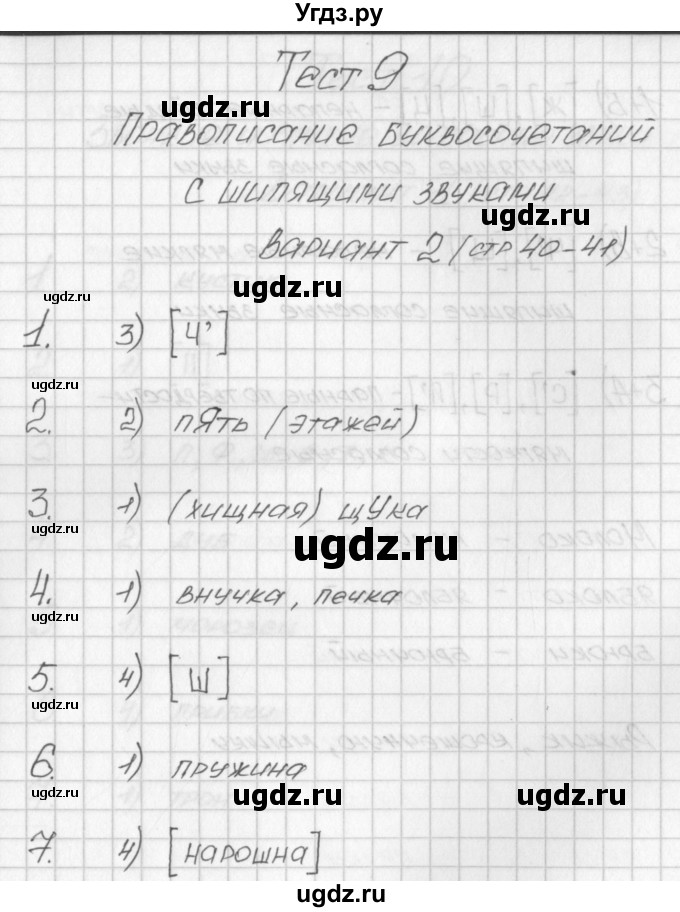 Угдз.ру
Тест 9
ugdz.ru
Правописание буквосочетаний
с шипящими звуками
ugdz.ru
Вариант 2 (стр 40-41)
ugdz.ru
ugdz.ru
1. 3) [ч’]
ugdz.ru
2. 2) пЯть (этажей)
ugdz.ru
3. 1) (хищная) щУка
ugdz.ru
ugdz.ru
4. 1) внучка, печка
ugdz.ru
5. 4) [ш]
ugdz.ru
6. 1) пружина
ugdz.ru
ugdz.ru
ugdz.ru
7. 4) [нарошна]
ugdz.ru